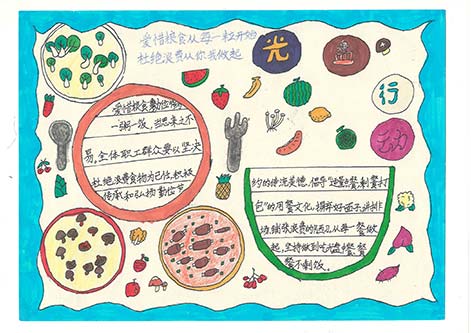 爱惜粮食从每一粒开始
杜绝浪费从你我做起
光
盘
行
动
爱惜粮食勤俭节约
一粥一饭，当思来之不
易。全体职工群众要以坚决
杜绝浪费食物为己任，积极
传承和弘扬勤俭节
约的传统美德。倡导"适量点餐、剩餐打
包"的用餐文化，摒弃好面子、讲排
场、铺张浪费的陋习。从每一餐做
起，坚持做到光盘用餐、餐
餐不剩饭。